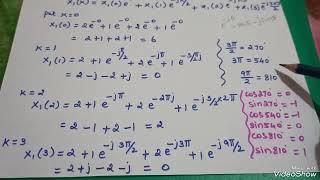 put k=0
x₁(0) = 2e⁻⁰ + e⁻⁰ + 2e⁻⁰ + 1e⁻⁰
= 2+1+2+1 = 6
k=1
x₁(1) = 2 + 1e^-jπ/2 + 2e^-jπ + 1e^-3π/2j
= 2-j-2+j = 0
k=2
x₁(2) = 2 + 1e^-jπ + 2e^-2πj + 1e^-j3/2×2π
= 2-1+2-1 = 2
k=3
x₁(3) = 2+1e^-j3π/2 + 2e^-j3π + 1e^-j9π/2
= 2+j-2-j = 0
3π/2 = 270°
3π = 540°
9π/2 = 810°
cos270 = 0
sin270 = -1
cos540 = -1
sin540 = 0
cos810 = 0
sin810 = 1
VideoShow